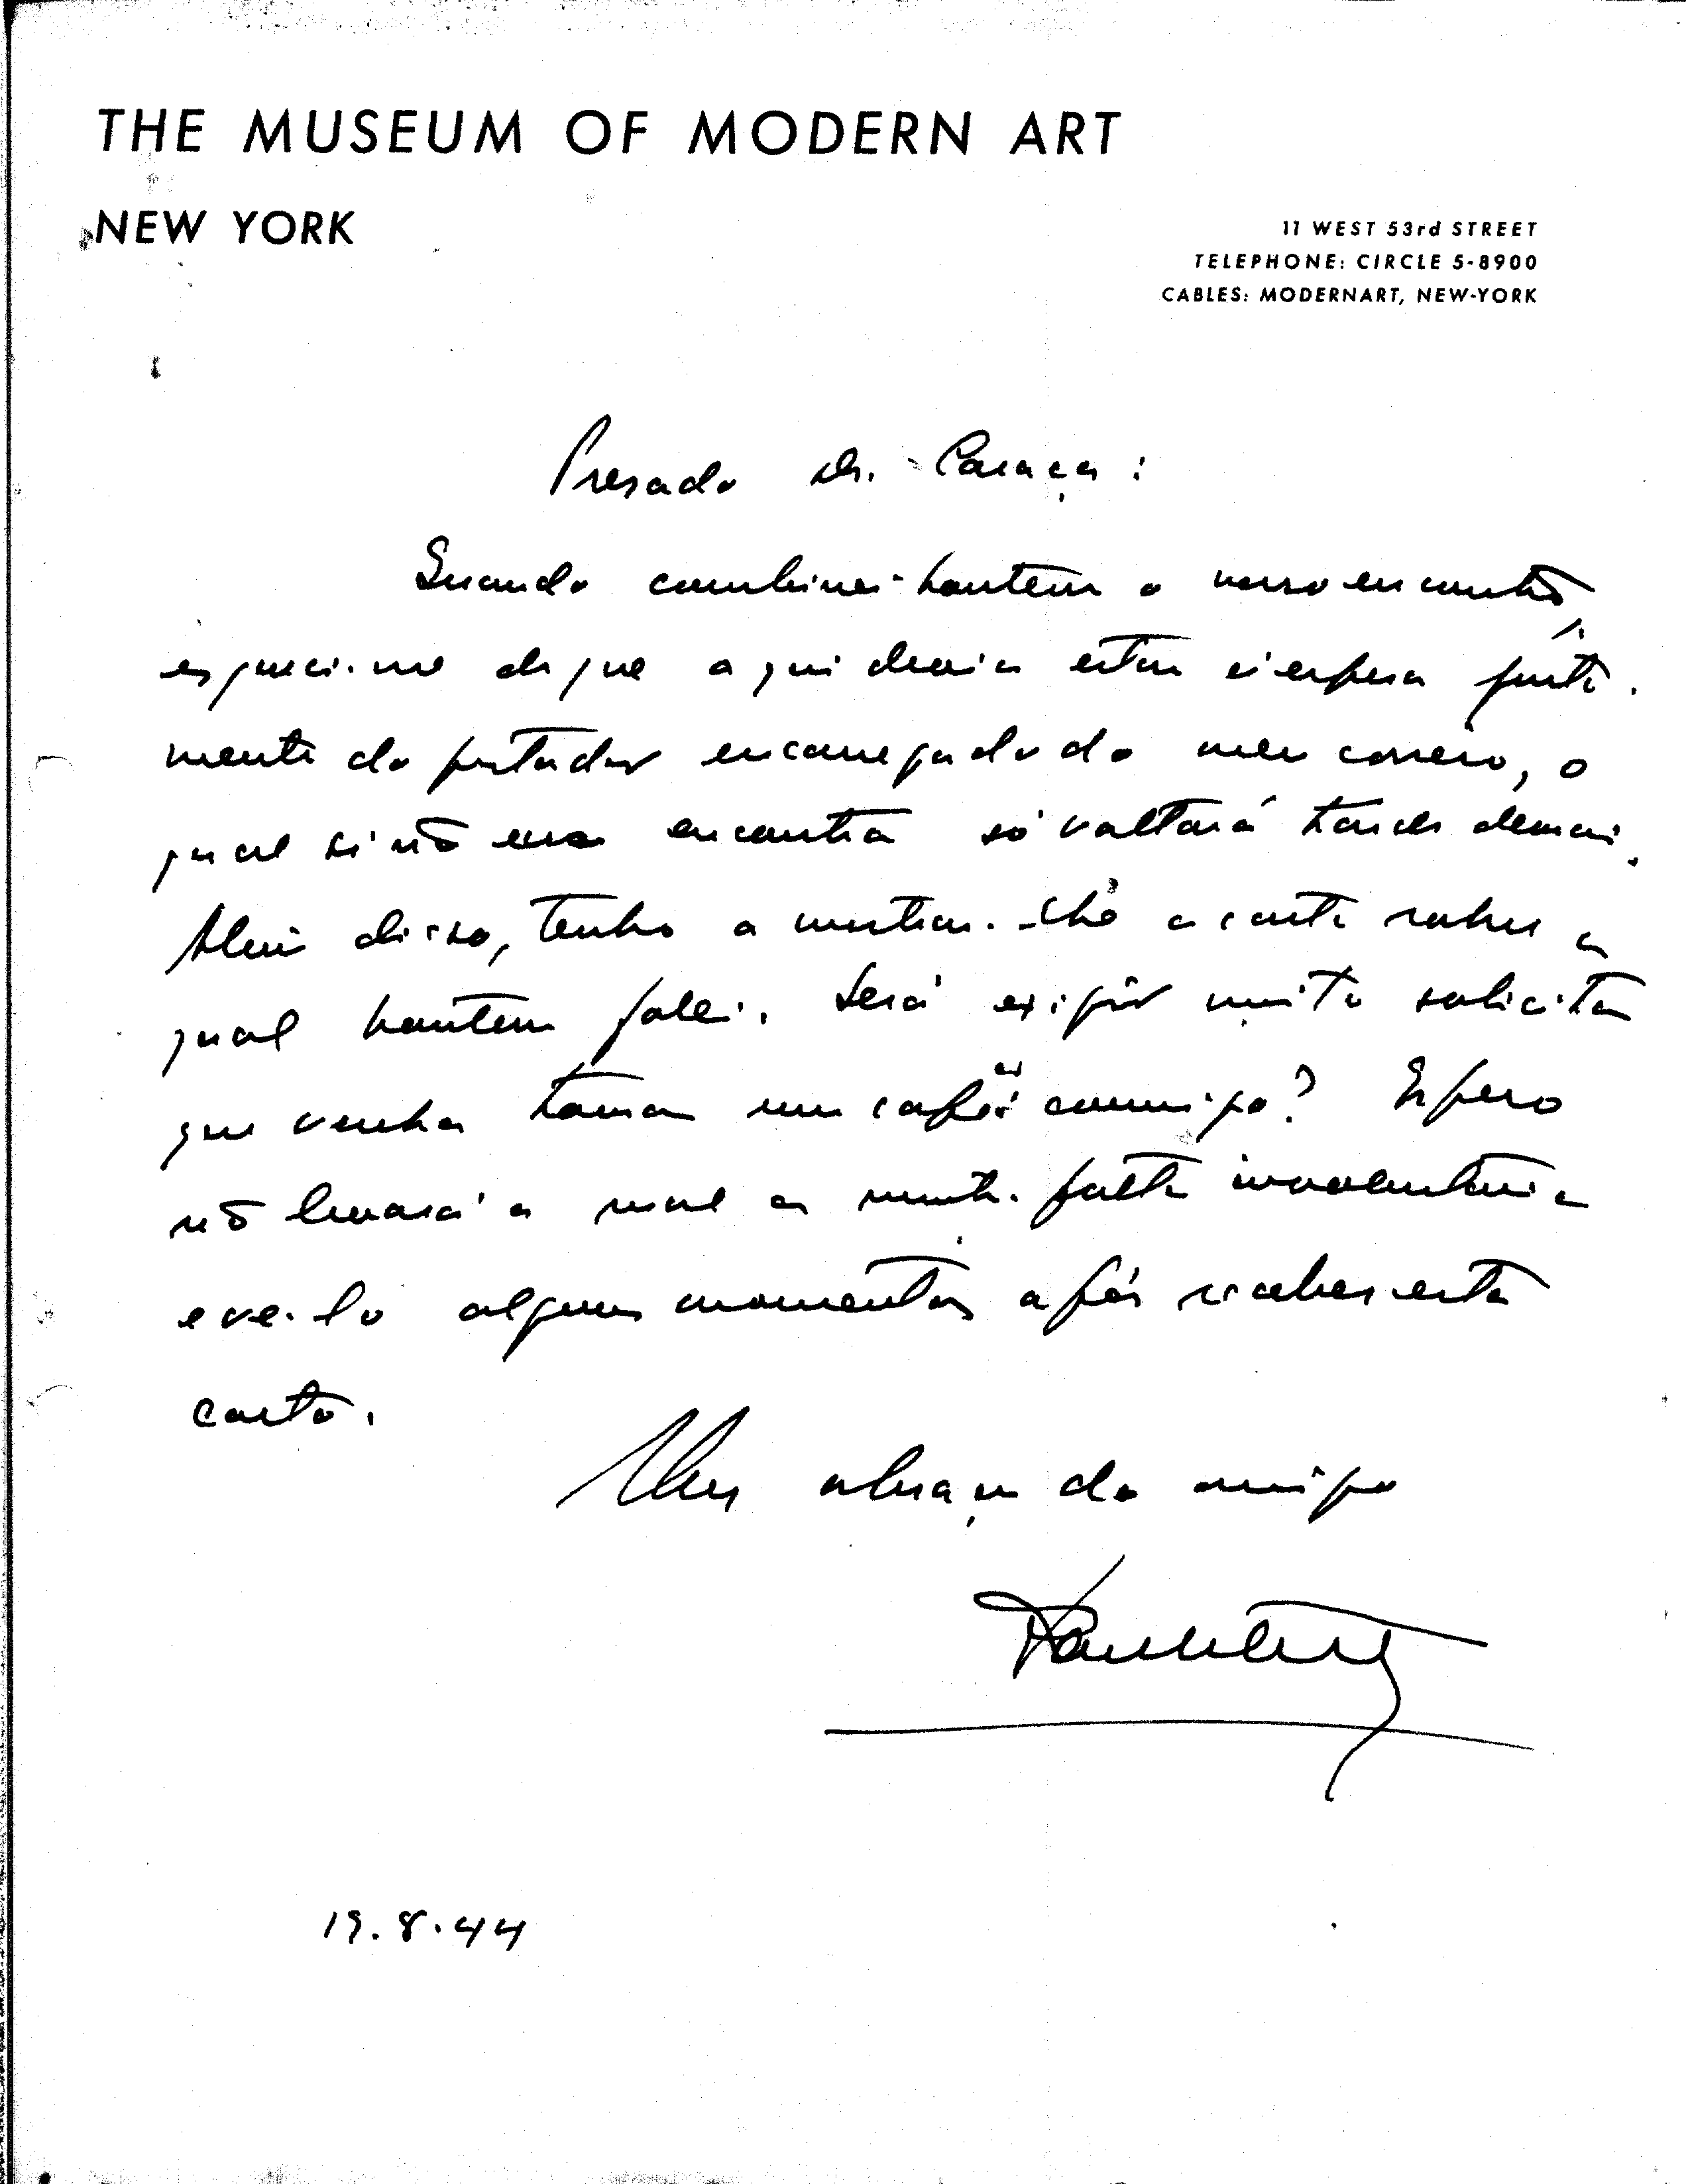 THE MUSEUM OF MODERN ART
NEW YORK
11 WEST 53rd STREET
TELEPHONE: CIRCLE 5-8900
CABLES: MODERNART, NEW-YORK
Presado Dr. Caraça:
Quando combinei hontem o nosso encontro,
esqueci-me de que aqui devia estar á espera justa-
mente do portador encarregado do meu correio, o
qual si não me encontra só voltará tarde demais.
Alem disso, tenho a mostrar-lhe a carta sobre a
qual hontem falei. Será exigir muito solicitar
que venha tomar um café comnigo? Espero
não levará a mal a minha falta involuntaria
e ve-lo alguns momentos após receber esta
carta.
Um abraço do amigo
19.8.44